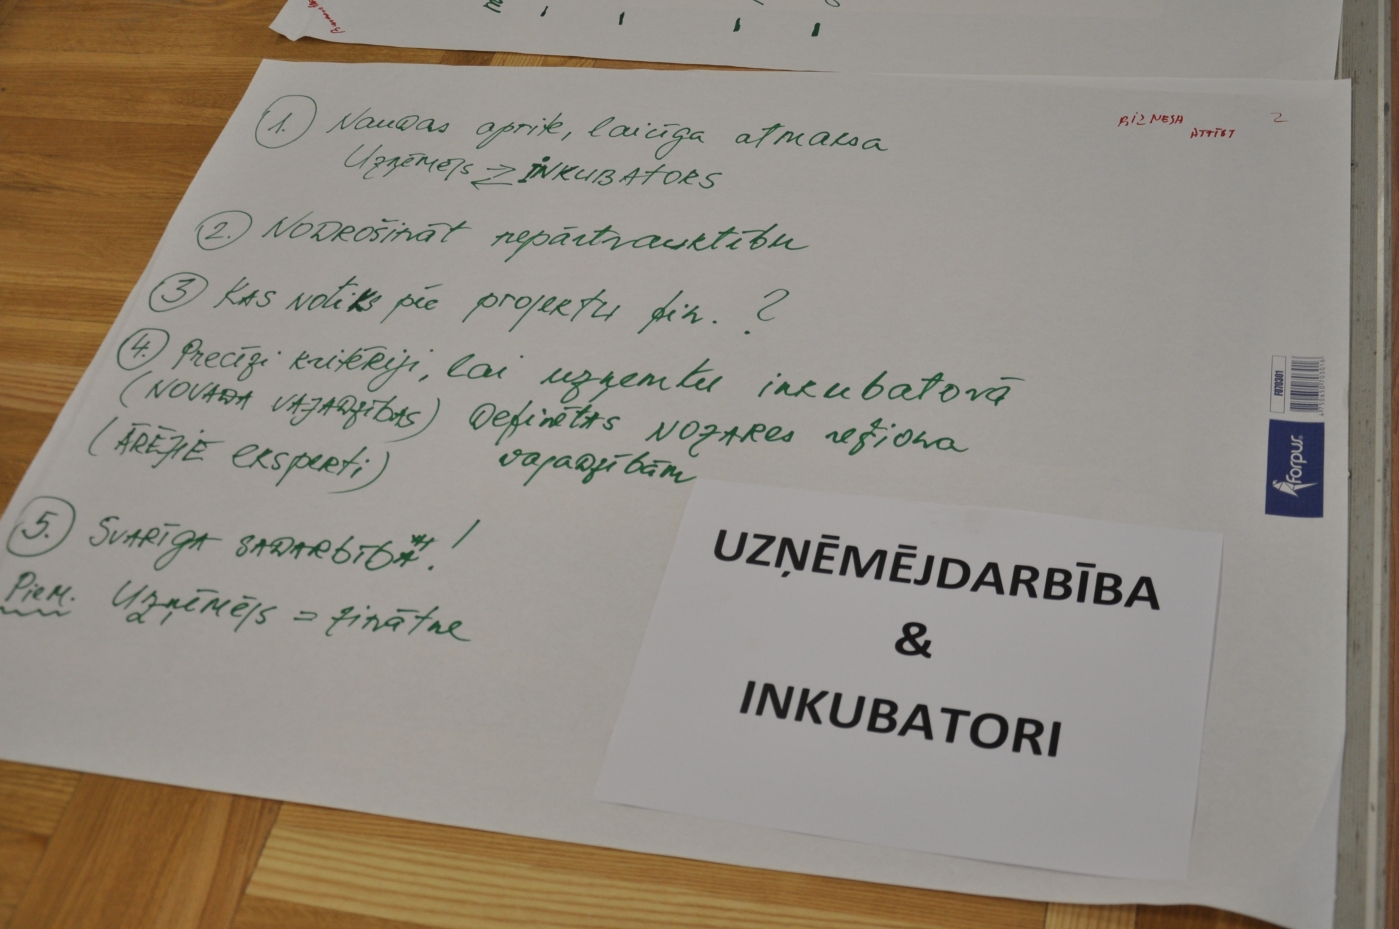 BIZNESA 2
ATTĪST
1. Naudas aprite, laicīga atmaksa
Uzņēmējs Z INKUBATORS
2. NODROŠINĀT nepārtrauktību
3 KAS NOTIKS pie projektu fin. ?
4. Precīzi kritēriji, lai uzņemtu inkubatorā
(NOVADA VAJADZĪBAS) DEFINĒTAS NOZARES reģiona
(ĀRĒJIE eksperti) vajadzībām
5. SVARĪGA SADARBĪBA !
Piem. Uzņēmējs = zinātne
UZŅĒMĒJDARBĪBA
&
INKUBATORI
F070301
forpus